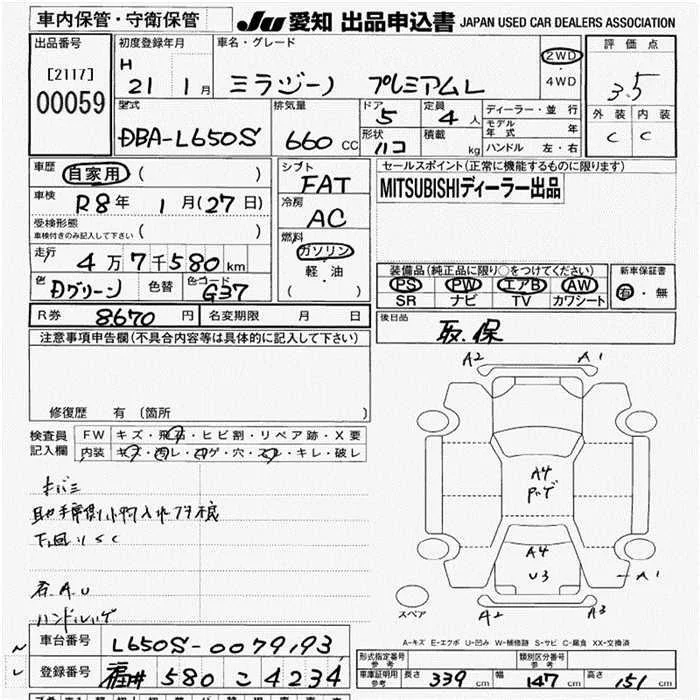 車内保管・守衛保管
JU 愛知 出品申込書 JAPAN USED CAR DEALERS ASSOCIATION
出品番号
[2117]
00059
初度登録年月
H 21 1月
車名・グレード
ミラジーノ プレミアムL
2WD
・
4WD
評価点
3.5
外装 内装
C C
型式
DBA-L650S
排気量
660 CC
ドア
5
定員
4人
形状
ハコ
積載
kg
ディーラー・並行
モデル年式 年
ハンドル 左・右
車歴 自家用 ( )
車検 R8年 1月(27日)
受検形態
車検付きのみ記入して下さい ( )
走行 4万7千580km
色 Dグリーン 色替 色コード G37
シフト
FAT
冷房
AC
燃料
ガソリン
軽・油
( )
セールスポイント(正常に機能するものに限ります)
MITSUBISHIディーラー出品
装備品(純正品に限り○をつけてください)
PS PW エアB AW
SR ナビ TV カワシート
新車保証書
有・無
R券 8670円 名変期限 月 日
後日品
取.保
注意事項申告欄(不具合内容等は具体的に記入して下さい)
修復歴 有 (箇所 )
検査員
記入欄
FW キズ・飛石・ヒビ割・リペア跡・X要
内装 キズ・汚レ・コゲ・穴・スレ・キレ・破レ
キバミ
下回りSC
A.U
A2 A1
A4
A4
U3
A1
A2 A3
スペア
A-キズ E-エクボ U-凹み W-補修跡 S-サビ C-腐食 XX-交換済
車台番号 L650S-0079193
登録番号 福井 580 こ 4234
形式指定番号
参考
類別区分番号
参考
車庫証明用
参考
長さ 339cm 幅 147cm 高さ 151cm